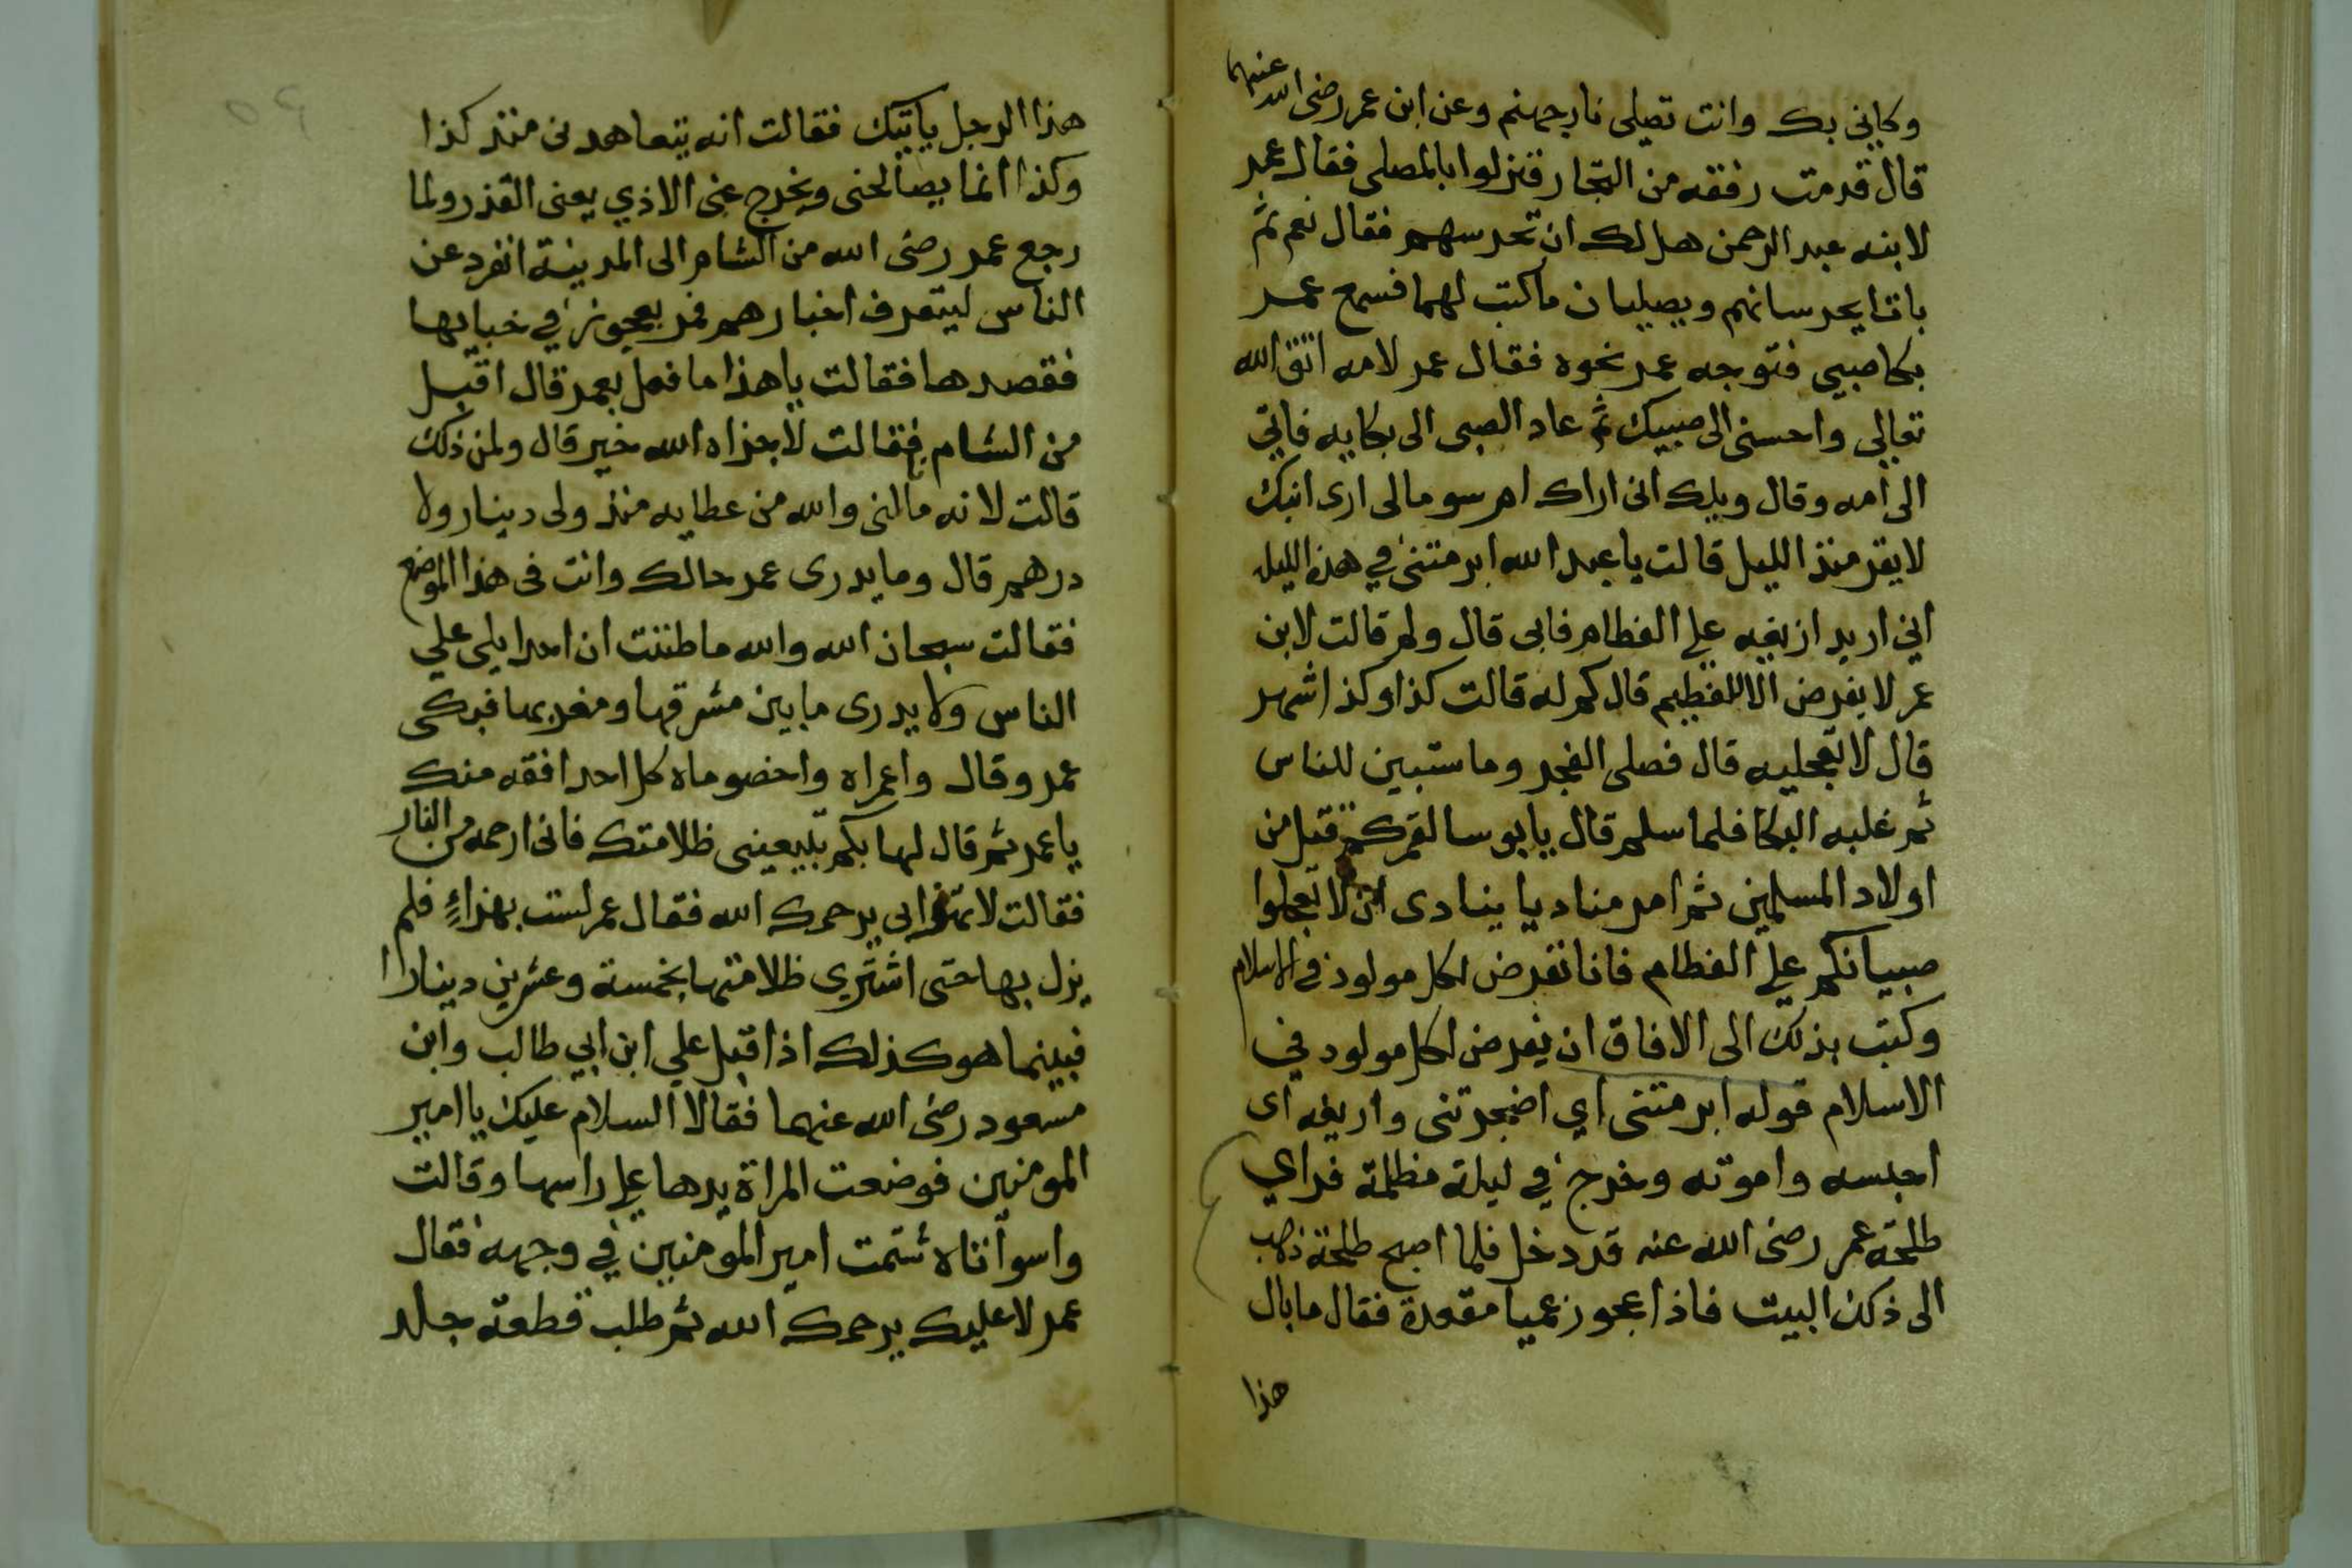 وكاني بك وانت تصلى نار جهنم وعن ابن عمر رضى الله عنهما
قال قدمت رفقه من التجار فنزلوا بالمصلى فقال عمر
لابنه عبد الرحمن هل لك ان تحرسهم فقال نعم ثم
باتا يحرسانهم ويصليان ما كتب لهما فسمع عمر
بكا صبي فتوجه عمر نحوه فقال عمر لامه اتق الله
تعالى واحسنى الى صبيك ثم عاد الصبى الى بكايه فاتي
الى امه وقال ويلك انى اراك ام سو مالى ارى ابنك
لا يقر منذ الليل قالت يا عبد الله ابرمتنى في هذه الليله
اني اريد ازيغه على الفطام فابى قال ولم قالت لابن
عمر لا يفرض الا للفطيم قال كم له قالت كذا وكذا شهر
قال لا تعجليه قال فصلى الفجر وما ستبين للناس
ثم غلبه البكا فلما سلم قال يا بوسا لعمر كم قتل من
اولاد المسلمين ثم امر مناديا ينادى ان لا تعجلوا
صبيانكم على الفطام فانا نفرض لكل مولود فى الاسلام
وكتب بذلك الى الافاق ان يفرض لكل مولود في
الاسلام قوله ابرمتنى اي اضجرتنى واريغه اى
احبسه واموته وخرج في ليلة مظلمة فراي
طلحة عمر رضى الله عنه قد دخل فلما اصبح طلحة ذهب
الى ذلك البيت فاذا عجوز عميا مقعدة فقال ما بال
هذا
هذا الرجل ياتيك فقالت انه يتعاهدنى منذ كذا
وكذا انما يصالحنى ويخرج عنى الاذي يعنى القذر ولما
رجع عمر رضى الله من الشام الى المدينة انفرد عن
الناس ليتعرف اخبارهم فمر بعجوز في خبايها
فقصدها فقالت يا هذا ما فعل بعمر قال اقبل
من الشام فقالت لا جزاه الله خير قال ولمن ذلك
قالت لانه ما لنى والله من عطايه منذ ولى دينار ولا
درهم قال وما يدرى عمر حالك وانت فى هذا الموضع
فقالت سبحان الله والله ما ظننت ان احدا يلى علي
الناس ولا يدرى ما بين مشرقها ومغربها فبكى
عمر وقال واعمراه واخصوماه كل احد افقه منك
يا عمر ثم قال لها بكم تبيعينى ظلامتك فانى ارحمه من النار
فقالت لا تهزا بى يرحمك الله فقال عمر لست بهزاءٍ فلم
يزل بها حتى اشترى ظلامتها بخمسة وعشرين دينارا
فبينما هو كذلك اذ اقبل علي ابن ابي طالب وابن
مسعود رضى الله عنهما فقالا السلام عليك يا امير
المومنين فوضعت المراة يدها على راسها وقالت
واسواتاه شتمت امير المومنين في وجهه فقال
عمر لا عليك يرحمك الله ثم طلب قطعة جلد